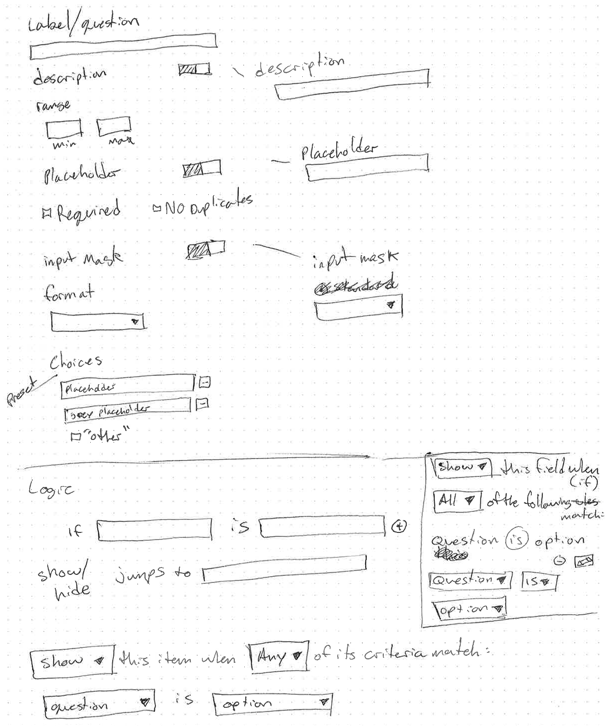 Label/question
description
description
range
min max
Placeholder
Placeholder
Required NO Duplicates
input Mask
input mask
format
Choices
Preset
Placeholder
placeholder
"other"
Logic
if is
show/
hide jumps to
Show this field when
(if)
All of the following rules
match:
Question is option
Question is
option
Show this item when Any of its criteria match:
question is option